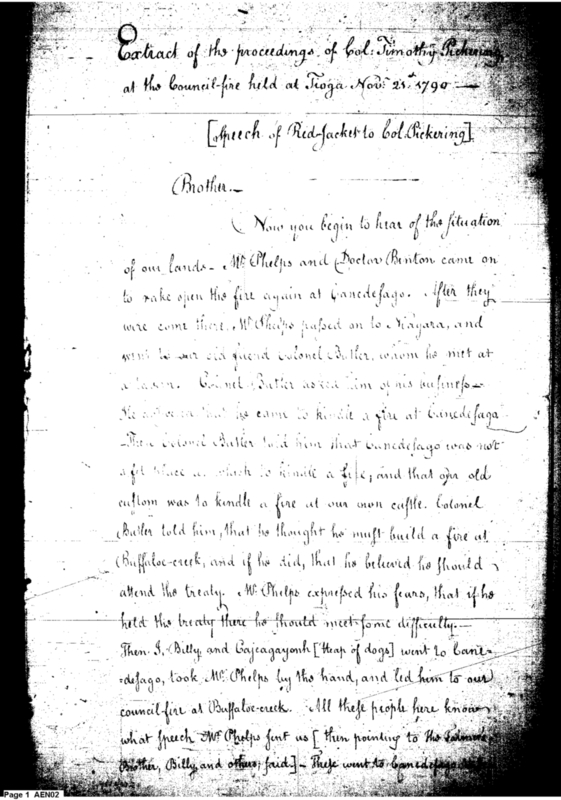 Extract of the proceedings of Col: Timothy Pickering,
at the Council-fire held at Tioga Novr. 21st. 1790 —
[Speech of Red-Jacket to Col. Pickering]
Brother. —
Now you begin to hear of the situation
of our lands - Mr. Phelps and Doctor Benton came on
to rake open the fire again at Canedesago. After they
were come there, Mr. Phelps passed on to Niagara, and
went to our old friend Colonel Butler, whom he met at
a tavern. Colonel Butler asked him of his business —
He answered that he came to kindle a fire at Canedesaga
- Then Colonel Butler told him that Canedesago was not
a fit place at which to kindle a fire, and that our old
custom was to kindle a fire at our own castle. Colonel
Butler told him, that he thought he must build a fire at
Buffaloe-creek, and if he did, that he believed he should
attend the treaty. Mr. Phelps expressed his fears, that if he
held the treaty there he should meet some difficulty. —
Then I, Billy and Cajcagayonh [Heap of dogs] went to Cane-
=desago, took Mr. Phelps by the hand, and led him to our
council-fire at Buffaloe-creek. All these people here know
what speech Mr. Phelps sent us [then pointing to the Farmers
Brother, Billy and others, said.] - These went to Canedesago
Page 1 AEN02